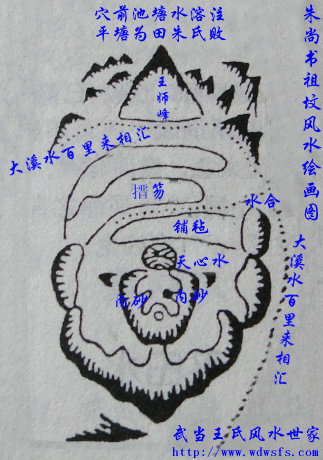 穴前池塘水溶注
平塘为田朱氏败
朱尚书祖坟风水绘画图
王师峰
大溪水百里来相汇
搢笏
水合
铺毡
天心水
内砂
内砂
大溪水百里来相汇
武当王氏风水世家
http://www.wdwsfs.com